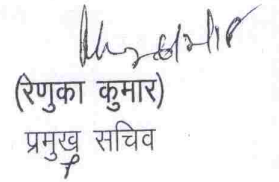 (रेणुका कुमार)
प्रमुख सचिव